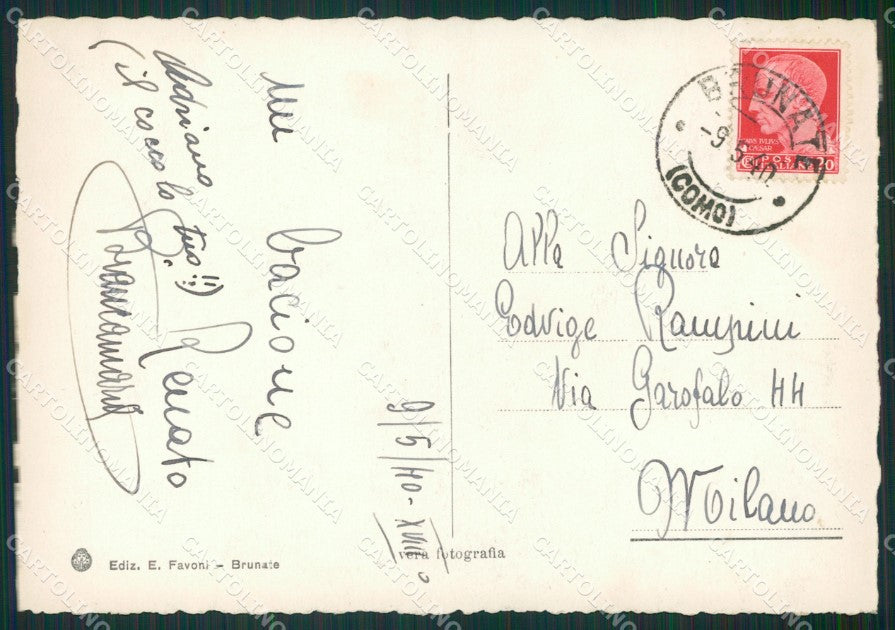 Un bacione
Renato
Adriano
(il cocco lo tuo!!)
9/5/40-XVIII°
BRUNATE
-9.5.40
(COMO)
CAIVS IVLIVS
CAESAR
POSTE ITALIANE
20
Alla Signora
Edvige Rampini
Via Garofalo 44
Milano
vera fotografia
Ediz. E. Favoni - Brunate
CARTOLINOMANIA